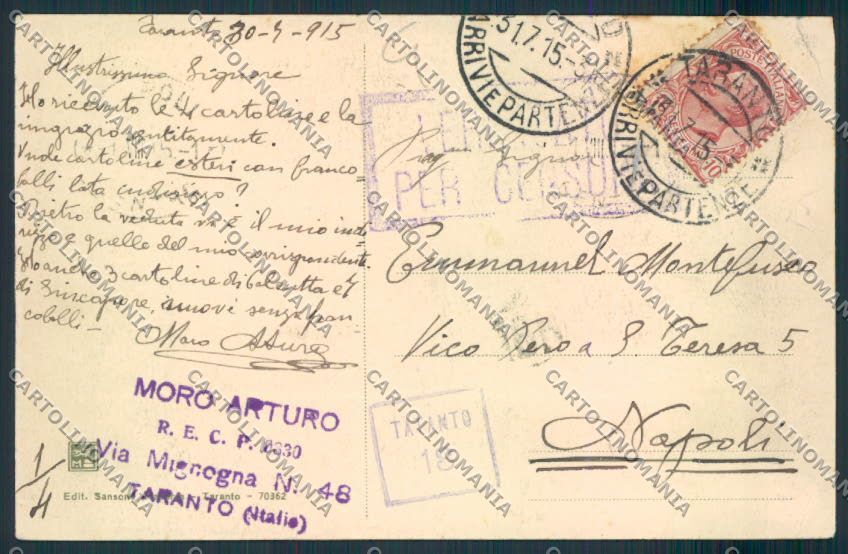 Taranto 30-7-915
Illustrissimo Signore
Ho ricevuto le 4 cartoline e la
ringrazio sentitamente.
cartoline esteri con franco
bolli
Dietro la veduta vi è il mio indi
rizzo e quello del mio corrispondente.
Ho anche 3 cartoline di Calcutta e 4
di Singapore nuovi senza fran
cobolli –
Moro Arturo
MORO ARTURO
R. E. C. P.
Via Mignogna N. 48
TARANTO (Italie)
1/4
Edit. Sanson Taranto - 70362
31.7.15
ARRIVI E PARTENZE
TARANTO
7.15
ARRIVI E PARTENZE
POSTE ITALIANE
10
PER CENSURA
Signor
Emmanuel Montefusco
Vico Pero a S Teresa 5
Napoli
TARANTO
18
CARTOLINOMANIA